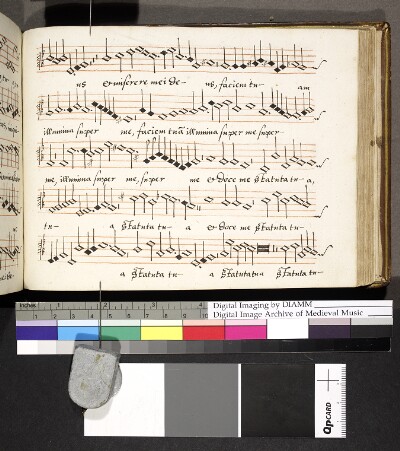 us et miserere mei De- us, faciem tu- am
illumina super me, faciem tuā illumina super me super-
me, illumina super me, super me et doce me statuta tu- a,
tu- a statuta tu- a et doce me statuta tu-
a statuta tu- a statuta tua statuta tu-
inches 1 2 3 4
Digital Imaging by DIAMM
Digital Image Archive of Medieval Music
QPCARD